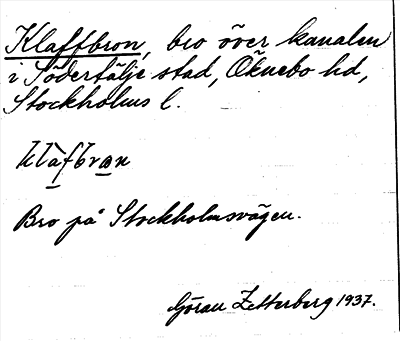 Klaffbron, bro över kanalen
i Södertälje stad, Öknebo hd,
Stockholms l.
klàfbrøn
Bro på Stockholmsvägen.
Göran Zetterberg 1937.